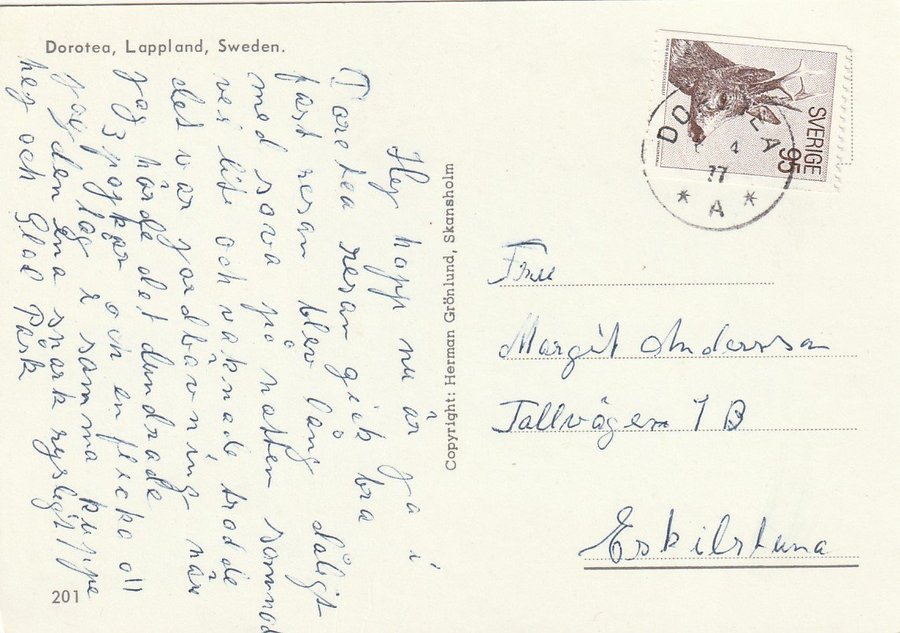 Dorotea, Lappland, Sweden.
Hej hopp nu är ja i
Doretea resan gick bra
fast resan blev lang dåligt
med sova på natten somnad
ves lite och vaknade trodde
det var jordbävning när
jag hörde det dundrade
3 pojkar och en flicka oll
jag lag i samma kuppe
jag den ena snark rysligt
hej och Glad Påsk
201
Copyright: Herman Grönlund, Skansholm
SVERIGE
95
DOROTEA
4
77
* A *
Fru
Margit Andersson
Tallvägen 1 B
Eskilstuna